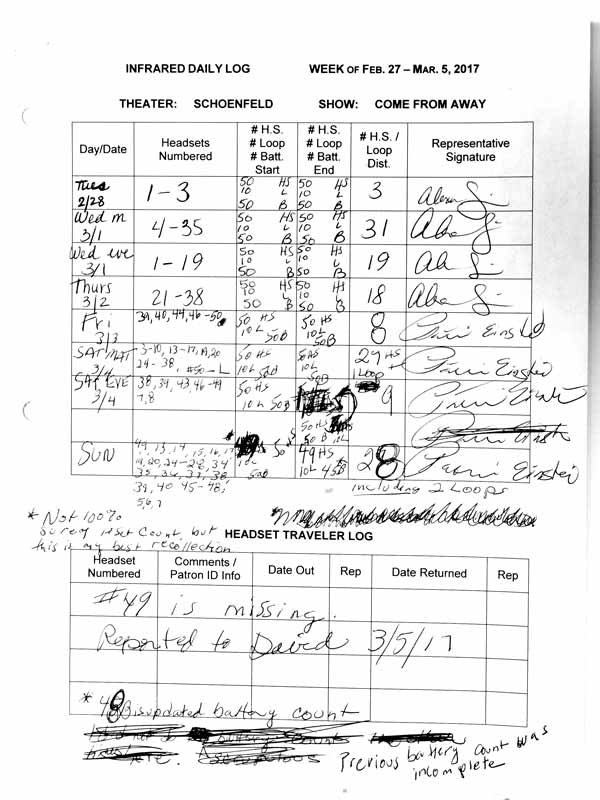 INFRARED DAILY LOG WEEK OF FEB. 27 – MAR. 5, 2017
THEATER: SCHOENFELD SHOW: COME FROM AWAY
Day/Date Headsets Numbered # H.S. # Loop # Batt. Start # H.S. # Loop # Batt. End # H.S. / Loop Dist. Representative Signature
Tues 2/28 1-3 50 HS 10 L 50 B 50 HS 10 L 50 B 3
Wed m 3/1 4-35 50 HS 10 L 50 B 50 HS 10 L 50 B 31
Wed eve 3/1 1-19 50 HS 10 L 50 B 50 HS 10 L 50 B 19
Thurs 3/2 21-38 50 HS 10 L 50 B 50 HS 10 L 50 B 18
Fri 3/3 39, 40, 44, 46-50 50 HS 10L 50B 50 HS 10L 50B 8 Einstein
SAT MAT 3/4 3-10, 13-17, 19, 20 24-38, #50-L 50 HS 10L 50B 50HS 10L 50B 29 HS + 1 Loop Einstein
SAT EVE 3/4 38, 39, 43, 46-49 7, 8 50 HS 10L 50B 9 Einstein
50 HS 50 B 10L
SUN 10L 50B 49 HS 10L 28 Einstein
39, 40 45-48, 5, 6, 7 including 2 Loops
* Not 100% sure of count, but this is my best recollection
HEADSET TRAVELER LOG
Headset Numbered Comments / Patron ID Info Date Out Rep Date Returned Rep
#49 is missing.
Reported to David 3/5/17
* 48B is updated battery count
Previous battery count was incomplete